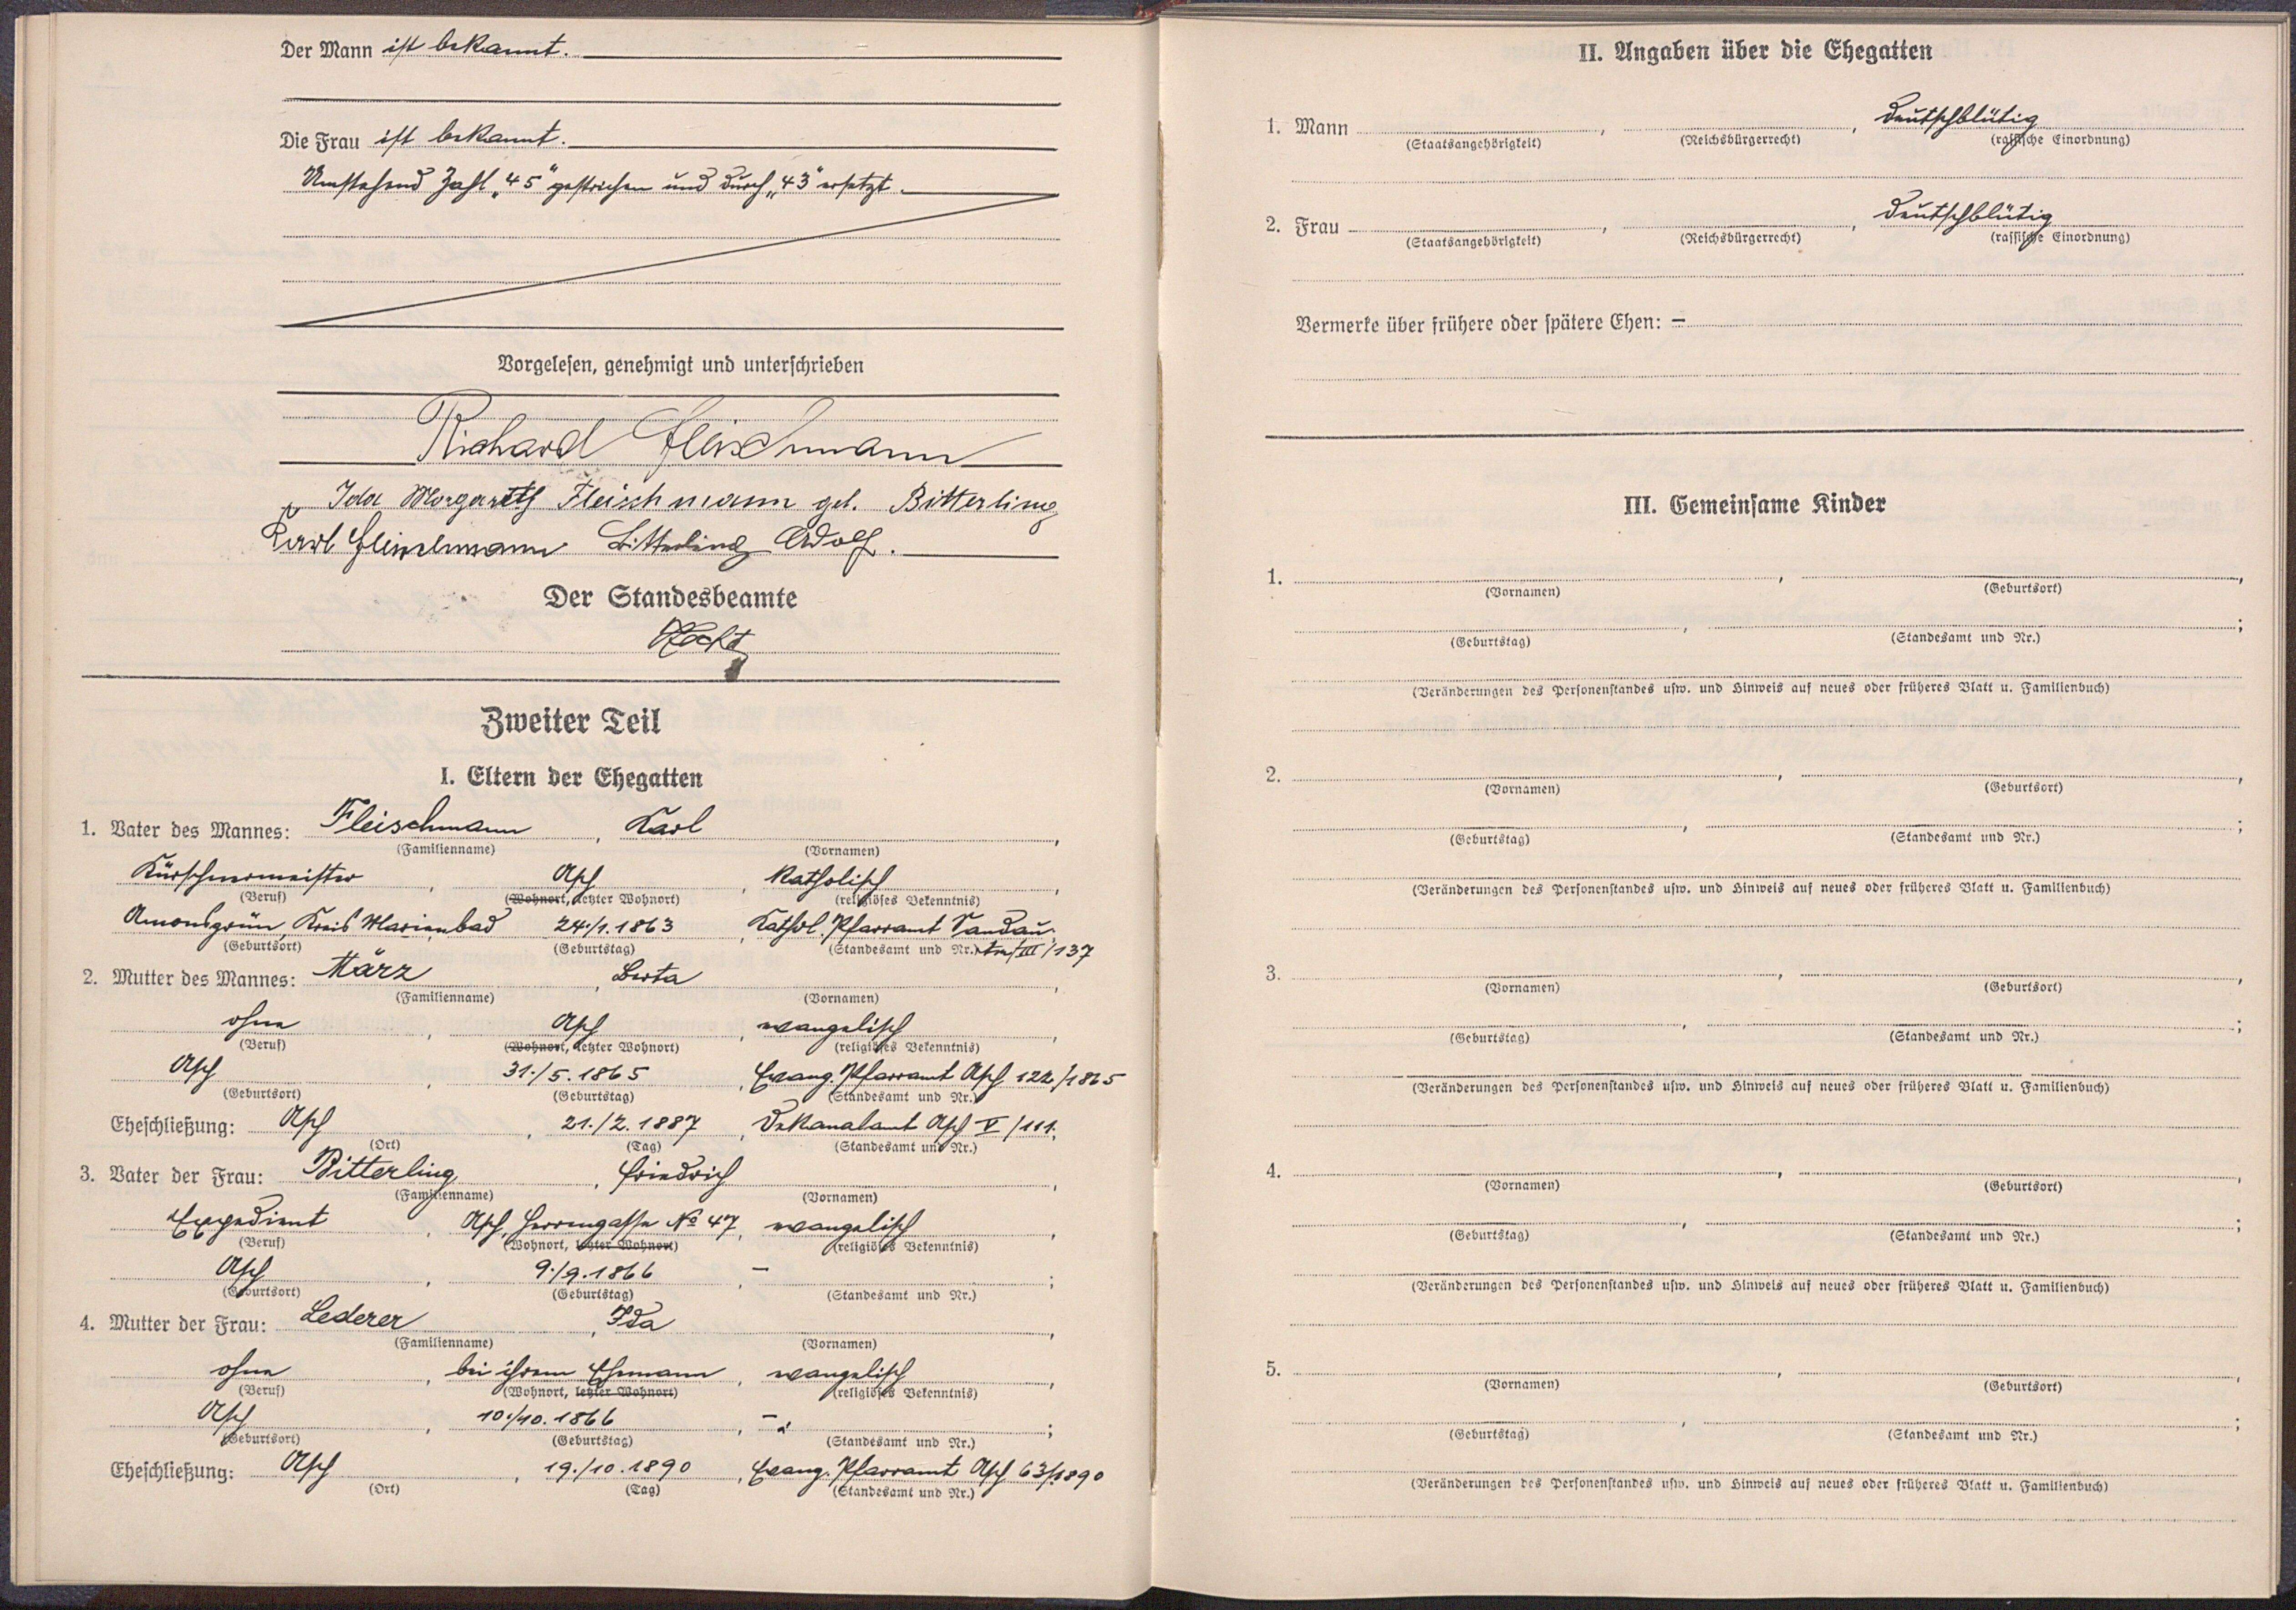 Der Mann ist bekannt.
Die Frau ist bekannt.
Umstehend Zahl „45“ gestrichen und durch „43“ ersetzt.
Vorgelesen, genehmigt und unterschrieben
Richard Fleischmann
Ida Margareth Fleischmann geb. Bitterling
Karl Fleischmann Bitterling Adolf.
Der Standesbeamte
Zweiter Teil
I. Eltern der Ehegatten
1. Vater des Mannes: Fleischmann, Karl,
(Familienname) (Vornamen)
Kürschnermeister, Asch, katholisch,
(Beruf) (Wohnort, letzter Wohnort) (religiöses Bekenntnis)
Amonsgrün, Kreis Marienbad 24./1.1863, Kathol. Pfarramt Sandau,
(Geburtsort) (Geburtstag) (Standesamt und Nr.) /III/137
2. Mutter des Mannes: März, Berta,
(Familienname) (Vornamen)
ohne, Asch, evangelisch,
(Beruf) (Wohnort, letzter Wohnort) (religiöses Bekenntnis)
Asch, 31./5.1865, Evang. Pfarramt Asch 122/1865
(Geburtsort) (Geburtstag) (Standesamt und Nr.)
Eheschließung: Asch, 21./2.1887, Dekanalamt Asch V/111.
(Ort) (Tag) (Standesamt und Nr.)
3. Vater der Frau: Bitterling, Friedrich,
(Familienname) (Vornamen)
Expedient, Asch, Herrengasse № 47, evangelisch,
(Beruf) (Wohnort, letzter Wohnort) (religiöses Bekenntnis)
Asch, 9./9.1866, – ;
(Geburtsort) (Geburtstag) (Standesamt und Nr.)
4. Mutter der Frau: Lederer, Ida,
(Familienname) (Vornamen)
ohne, bei ihrem Ehemann, evangelisch,
(Beruf) (Wohnort, letzter Wohnort) (religiöses Bekenntnis)
Asch, 10./10.1866, – ;
(Geburtsort) (Geburtstag) (Standesamt und Nr.)
Eheschließung: Asch, 19./10.1890, Evang. Pfarramt Asch 63/1890
(Ort) (Tag) (Standesamt und Nr.)
II. Angaben über die Ehegatten
1. Mann , , deutschblütig
(Staatsangehörigkeit) (Reichsbürgerrecht) (rassische Einordnung)
2. Frau , , deutschblütig
(Staatsangehörigkeit) (Reichsbürgerrecht) (rassische Einordnung)
Vermerke über frühere oder spätere Ehen: –
III. Gemeinsame Kinder
1. , ,
(Vornamen) (Geburtsort)
, ;
(Geburtstag) (Standesamt und Nr.)
(Veränderungen des Personenstandes usw. und Hinweis auf neues oder früheres Blatt u. Familienbuch)
2. , ,
(Vornamen) (Geburtsort)
, ;
(Geburtstag) (Standesamt und Nr.)
(Veränderungen des Personenstandes usw. und Hinweis auf neues oder früheres Blatt u. Familienbuch)
3. , ,
(Vornamen) (Geburtsort)
, ;
(Geburtstag) (Standesamt und Nr.)
(Veränderungen des Personenstandes usw. und Hinweis auf neues oder früheres Blatt u. Familienbuch)
4. , ,
(Vornamen) (Geburtsort)
, ;
(Geburtstag) (Standesamt und Nr.)
(Veränderungen des Personenstandes usw. und Hinweis auf neues oder früheres Blatt u. Familienbuch)
5. , ,
(Vornamen) (Geburtsort)
, ;
(Geburtstag) (Standesamt und Nr.)
(Veränderungen des Personenstandes usw. und Hinweis auf neues oder früheres Blatt u. Familienbuch)